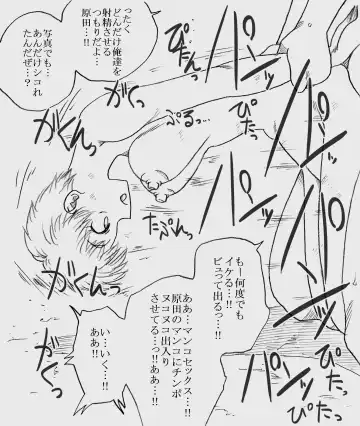 ったく
どんだけ俺達を
射精させる
つもりだよ
原田…!!
写真でも…
あんだけシコれ
たんだぜ…?
ぴたっ
パンッ
ぴたっ
パンッ
ぷるっ…
がくんっ
がくんっ
たぷんっ
パンッ
パンッ
がくんっ
もー何度でも
イケる…!!
ビュって出るっ…!!
ああ…マンコセックス…!!
原田のマンコにチンポ
ヌコヌコ出入り
させてる…っ!!ああ…!!
い…いく…!!
ああ!!